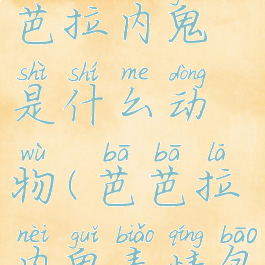 芭拉内鬼
shì shí me dòng
是什么动
wù bā bā lā
物(芭芭拉
nèi guǐ biǎo qíng bāo
内鬼表情包